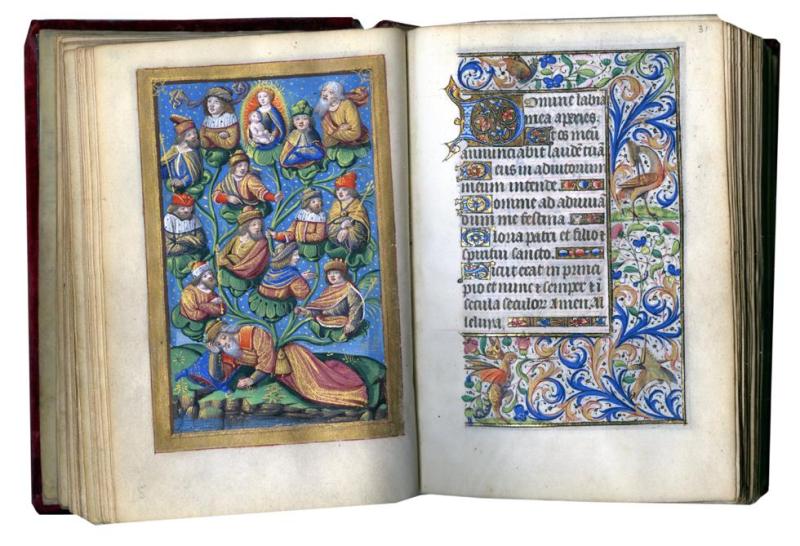 31
Domine labia
mea aperies.
et os meū
annunciabit laudē tuā
Deus in adiutorium
meum intende.
Domine ad adiuuā
dum me festina
Gloria patri et filio et
spiritui sancto.
Sicut erat in princi
pio et nunc et semper et ī
secula seculorū amen. Al
leluia.